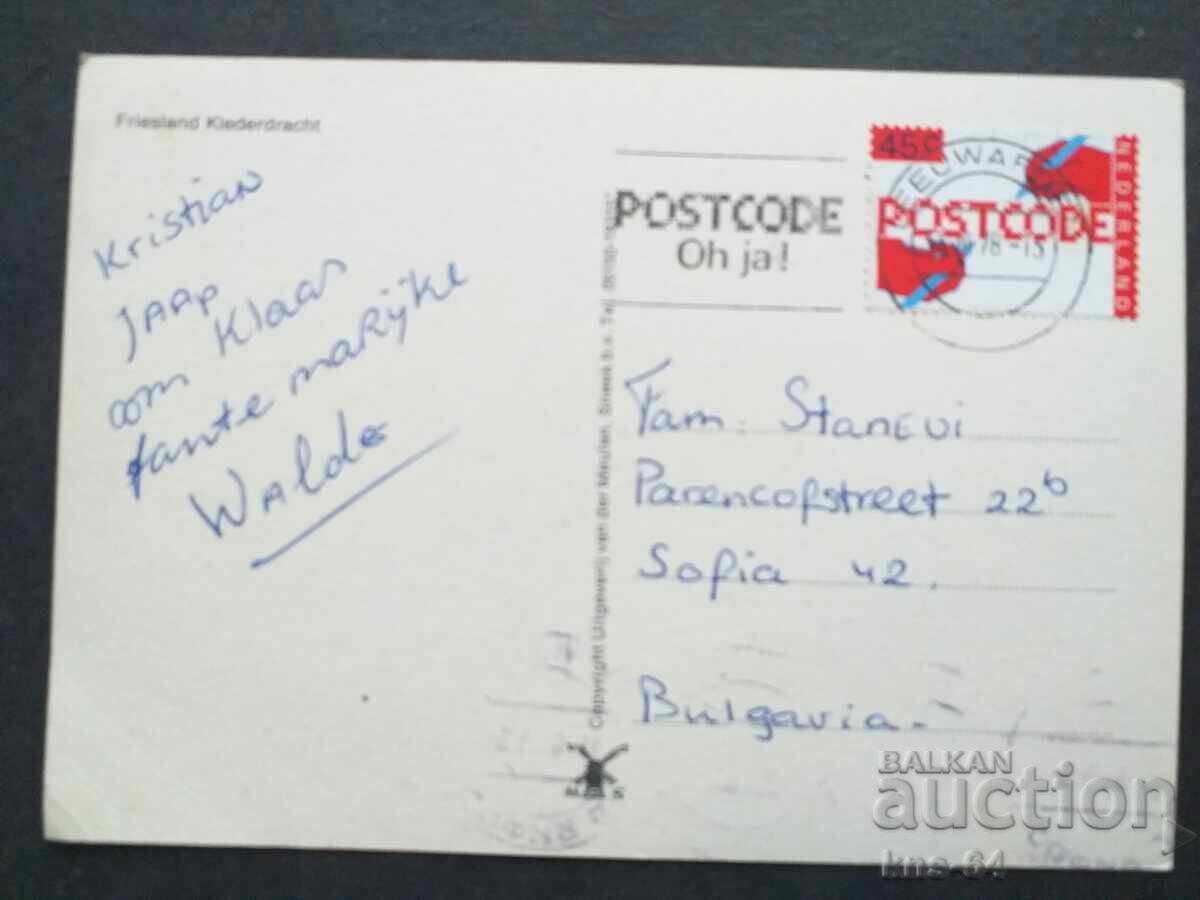 Friesland Klederdracht
Kristian
JAAP
oom Klaas
tante marijke
Walde
POSTCODE
Oh ja!
45c
POSTCODE
NEDERLAND
LEEUWARDEN
78-13
Copyright Uitgeverij van der Meulen, Sneek b.v. Tel.
Fam. Stanevi
Parencofstreet 22b
Sofia 42.
Bulgaria.
BALKAN
auction
kns-64